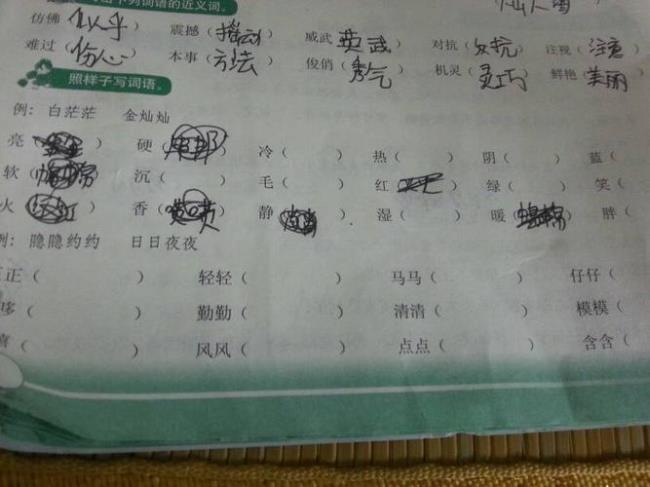 下列词语的近义词。
仿佛（似乎 震撼（撼动 威武（英武 对抗（反抗 注视（注意
难过（伤心 本事（方法 俊俏（秀气 机灵（灵巧 鲜艳（美丽
照样子写词语。
例：白茫茫 金灿灿
亮（ ） 硬（ ） 冷（ ） 热（ ） 阴（ ） 蓝（
软（ ） 沉（ ） 毛（ ） 红（ ） 绿（ ） 笑（
火（ ） 香（ ） 静（ ） 湿（ ） 暖（ ） 胖（
例：隐隐约约 日日夜夜
正（ ） 轻轻（ ） 马马（ ） 仔仔（
哆（ ） 勤勤（ ） 清清（ ） 模模（
喜（ ） 风风（ ） 点点（ ） 含含（